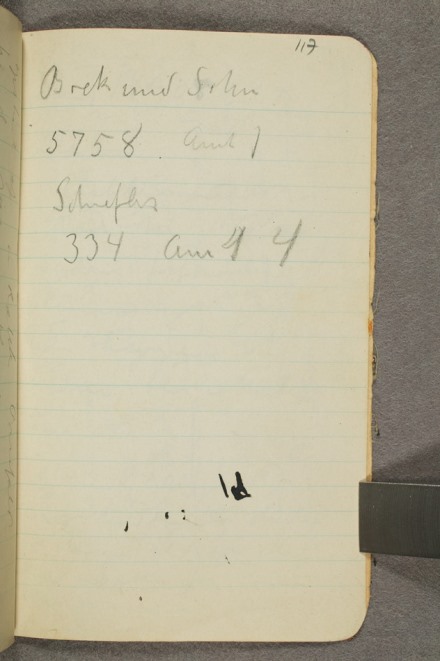 117
Bock und Sohn
5758. Amt 1
334 Amt 4